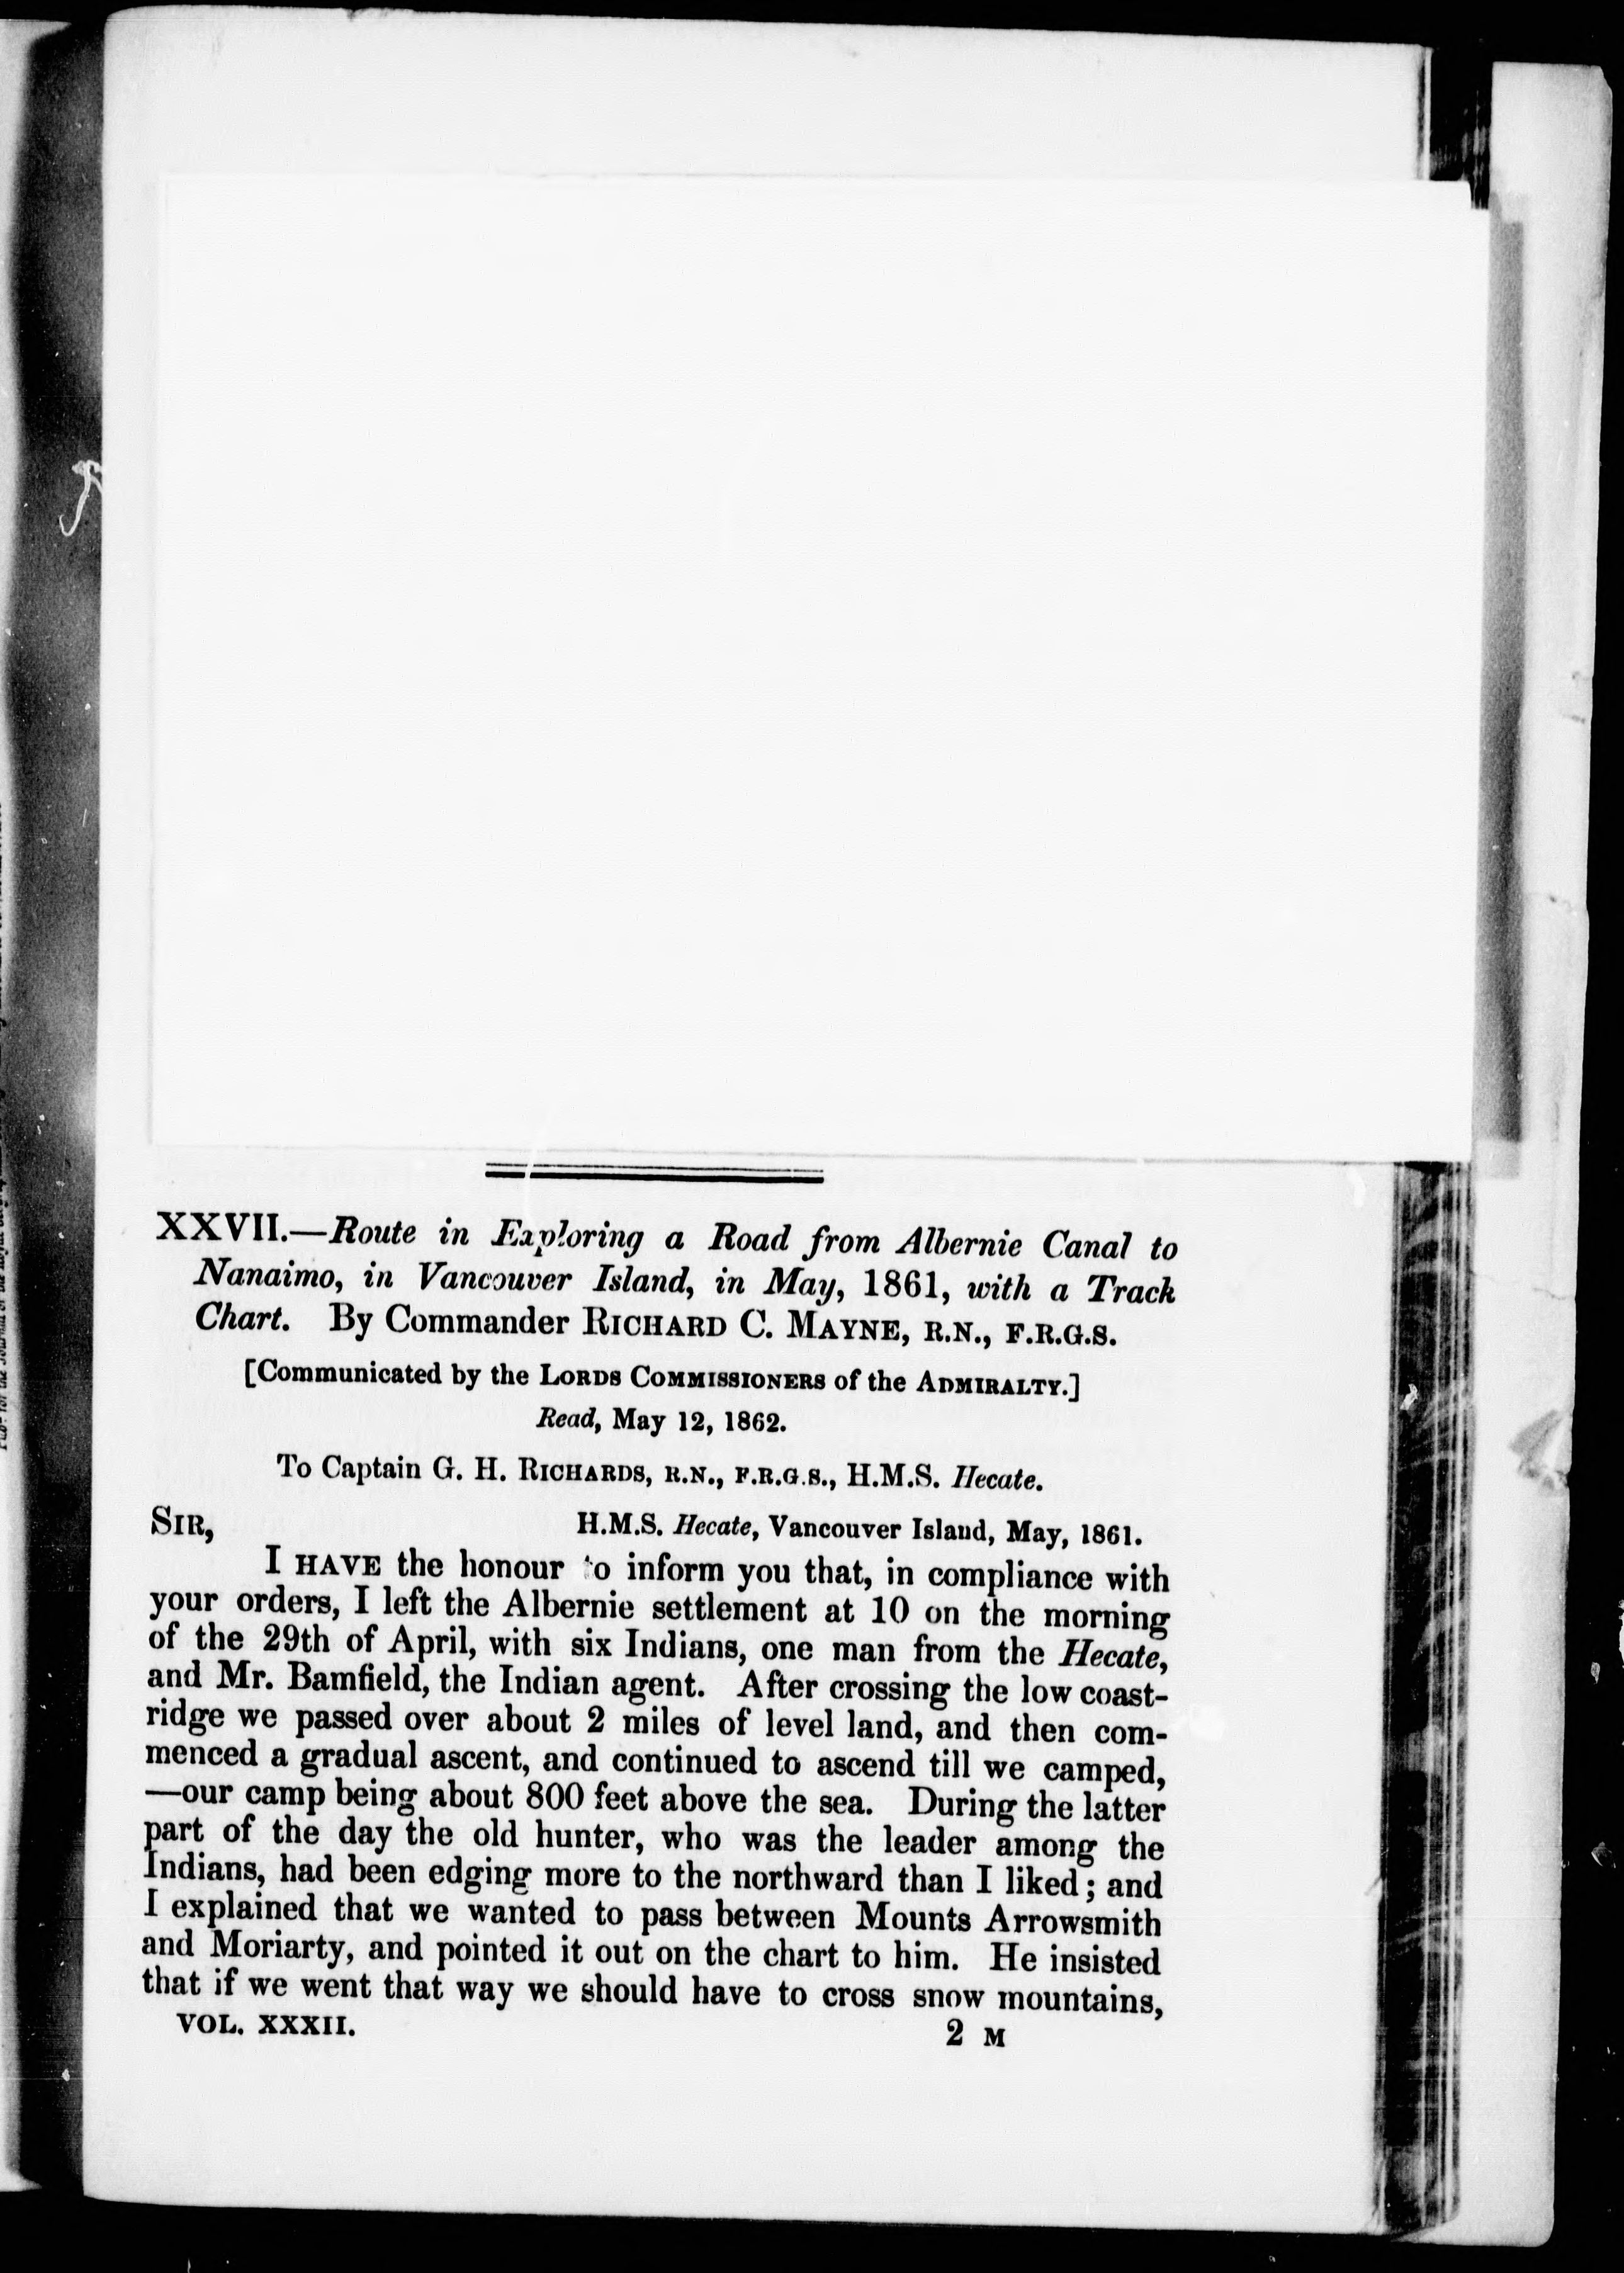 XXVII.—Route in Exploring a Road from Albernie Canal to
Nanaimo, in Vancouver Island, in May, 1861, with a Track
Chart. By Commander RICHARD C. MAYNE, R.N., F.R.G.S.
[Communicated by the LORDS COMMISSIONERS of the ADMIRALTY.]
Read, May 12, 1862.
To Captain G. H. RICHARDS, R.N., F.R.G.S., H.M.S. Hecate.
SIR, H.M.S. Hecate, Vancouver Island, May, 1861.
I HAVE the honour to inform you that, in compliance with
your orders, I left the Albernie settlement at 10 on the morning
of the 29th of April, with six Indians, one man from the Hecate,
and Mr. Bamfield, the Indian agent. After crossing the low coast-
ridge we passed over about 2 miles of level land, and then com-
menced a gradual ascent, and continued to ascend till we camped,
—our camp being about 800 feet above the sea. During the latter
part of the day the old hunter, who was the leader among the
Indians, had been edging more to the northward than I liked; and
I explained that we wanted to pass between Mounts Arrowsmith
and Moriarty, and pointed it out on the chart to him. He insisted
that if we went that way we should have to cross snow mountains,
VOL. XXXII. 2 M